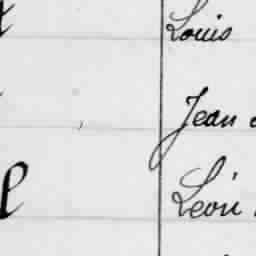 Louis
Jean
Léon